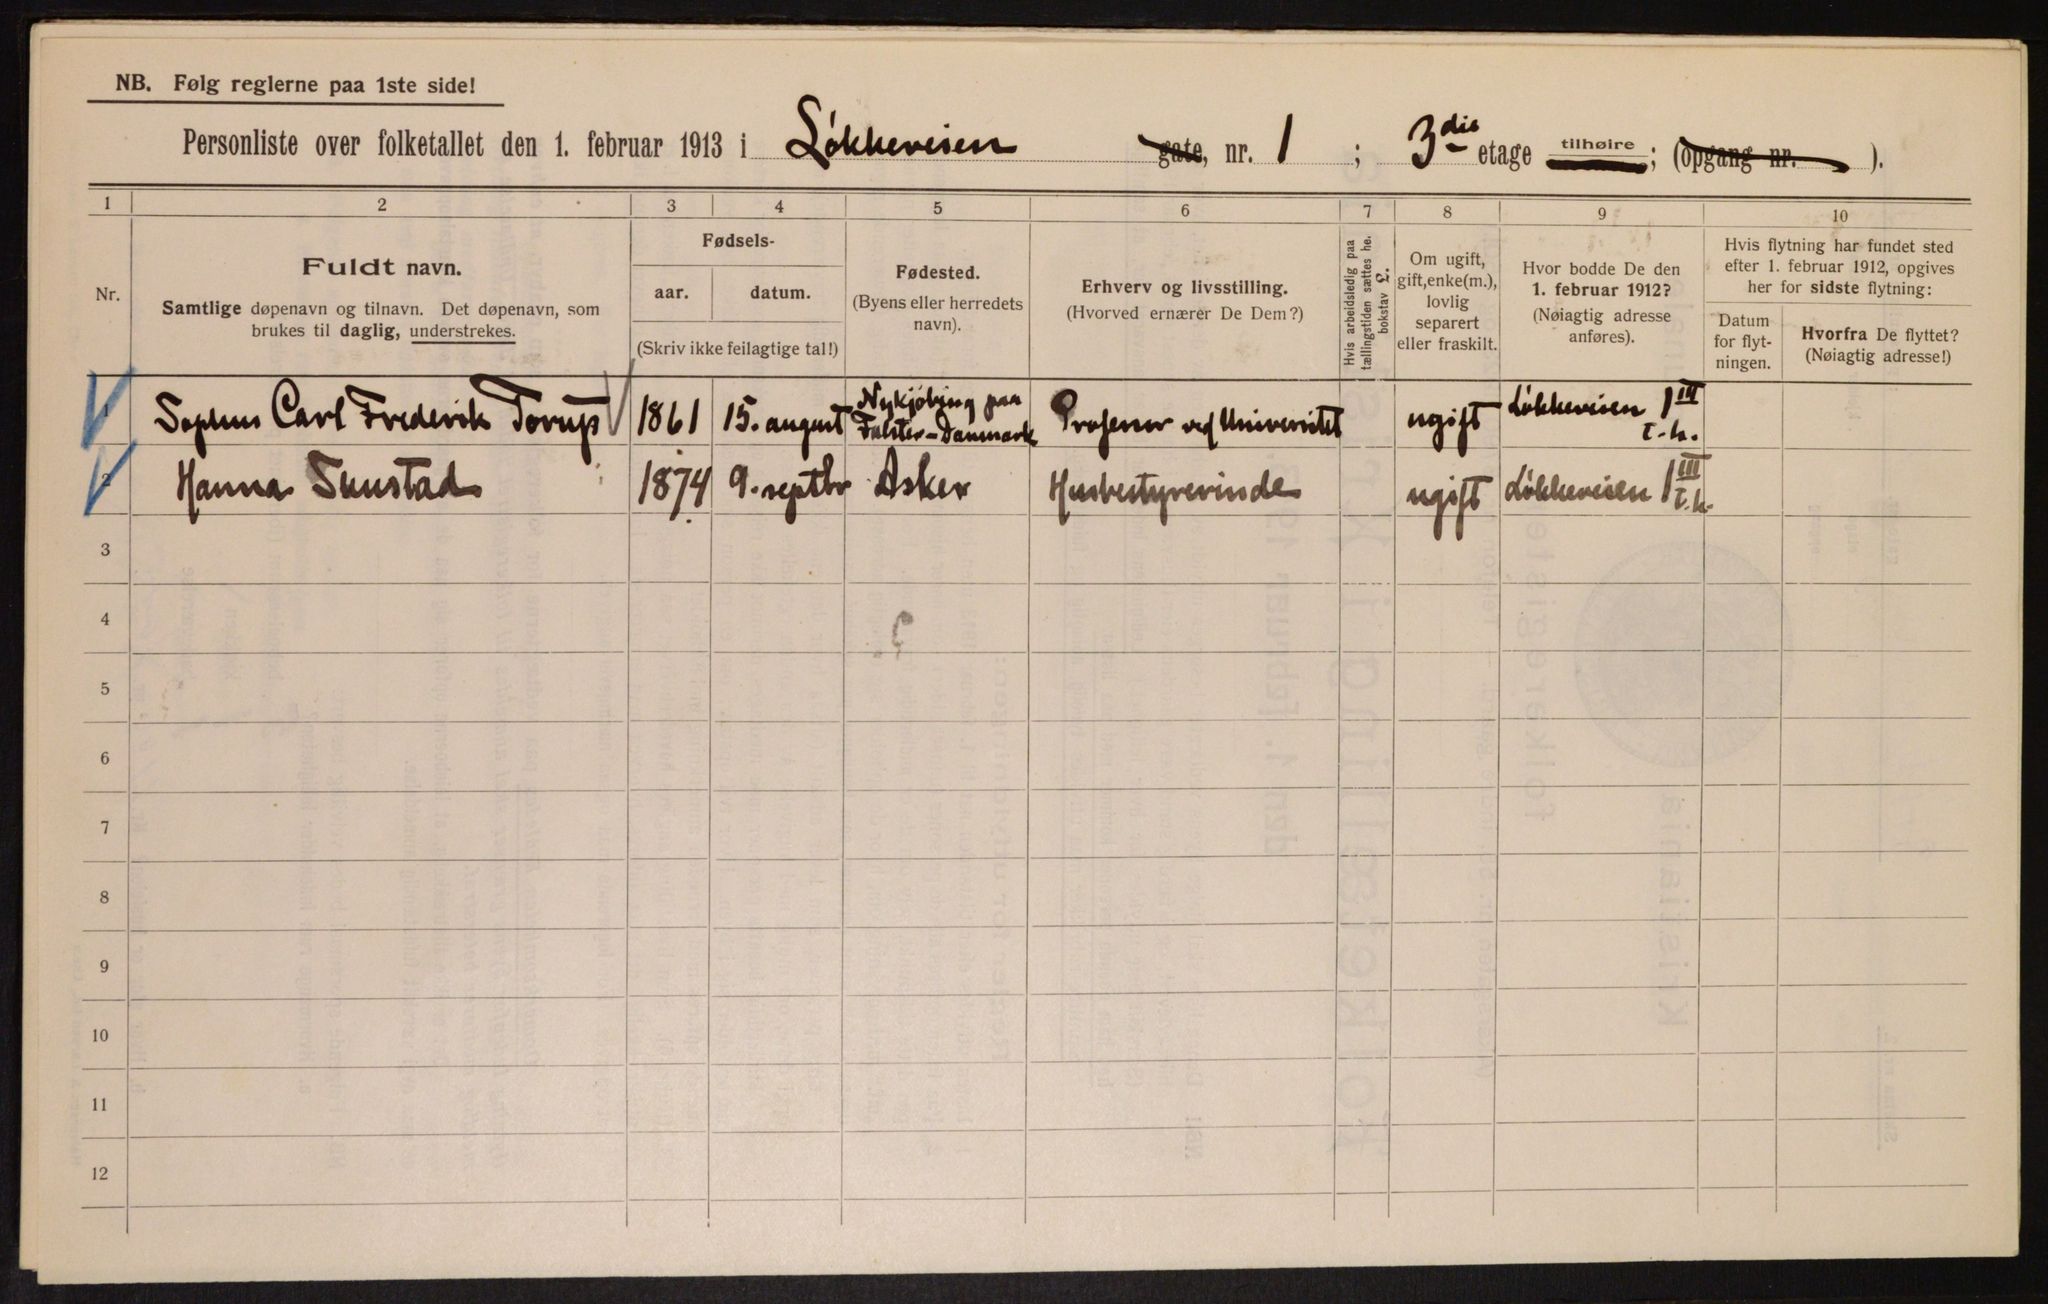 NB. Følg reglerne paa 1ste side!
Personliste over folketallet den 1. februar 1913 i Løkkeveien gate, nr. 1 ; 3die etage tilhøire ; (opgang nr. ).
1 2 3 4 5 6 7 8 9 10
Nr.
Fuldt navn.
Samtlige døpenavn og tilnavn. Det døpenavn, som
brukes til daglig, understrekes.
Fødsels-
aar. datum.
(Skriv ikke feilagtige tal!)
Fødested.
(Byens eller herredets
navn).
Erhverv og livsstilling.
(Hvorved ernærer De Dem?)
Hvis arbeidsledig paa
tællingstiden sættes he.
bokstav £.
Om ugift,
gift, enke(m.),
lovlig
separert
eller fraskilt.
Hvor bodde De den
1. februar 1912?
(Nøiagtig adresse
anføres).
Hvis flytning har fundet sted
efter 1. februar 1912, opgives
her for sidste flytning:
Datum
for flyt-
ningen.
Hvorfra De flyttet?
(Nøiagtig adresse!)
1 Sophus Carl Frederik Torup 1861 15. august Nykjøbing paa Falster-Danmark Professor ved Universitet ugift Løkkeveien 1 III t.h.
2 Hanna 1874 9. septbr Asker Husbestyrerinde ugift Løkkeveien 1 III t.h.
3
4
5
6
7
8
9
10
11
12